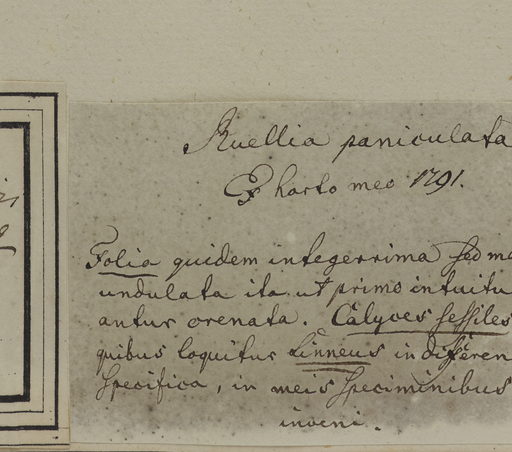 Ruellia paniculata
Ex horto meo 1791.
Folia quidem integerrima sed
undulata ita ut primo intuitu
antur crenata. Calyces sessiles
quibus loquitur Linneus in differen
specifica, in meis speciminibus
inveni.